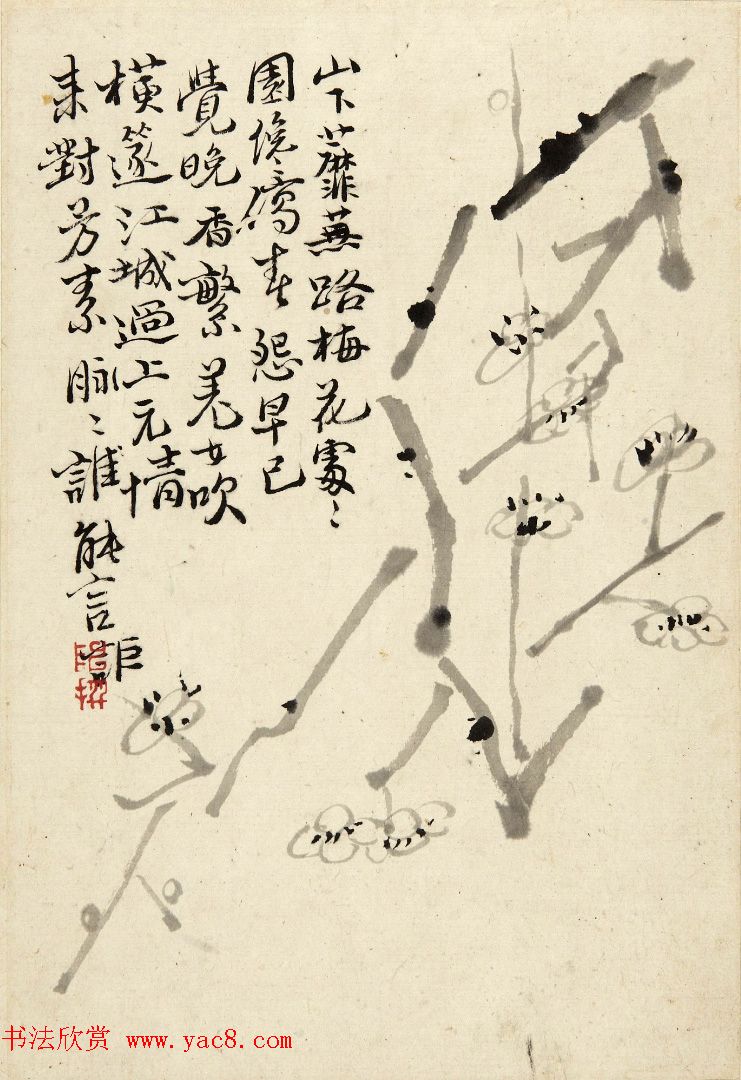 山下蘼蕪路梅花處〻
園傷春怨早已
覺晚香繁羌女吹
橫篴江城過上元情
来對芳素脈〻誰能言
詎
书法欣赏 www.yac8.com